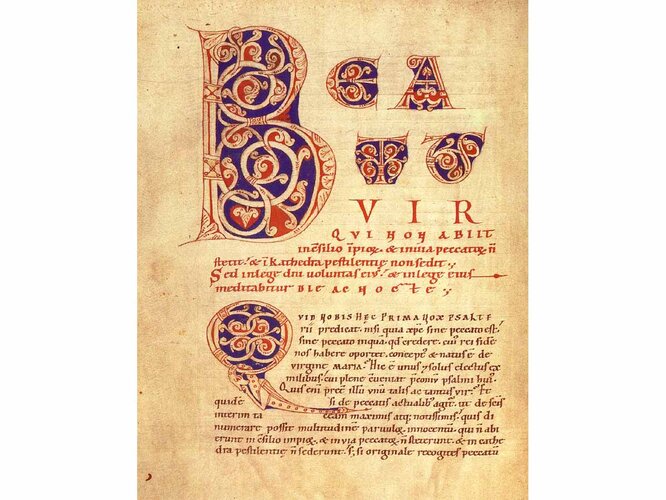 BEATUS
VIR
QVI NON ABIIT
inc̄silio īpioꝝ. & in via peccatoꝝ ñ
stetit. & ī kathedra pestilentię non sedit ;
Sed in lege dñi voluntas eiꝰ. & in lege eius
meditabitur DIE AC NOCTE ;
QVID NOBIS HEC PRIMA VOX PSALTE
rii predicat. nisi quia xp̄c sine peccato est.
sine peccato inquā. qđ credere. cui rei fidē
nos habere oportet. concep̄ & natus ē de
virgine MARIA. Hic ē unus & solus electus ex
milibus. cui plene c̄veniat
Quis eni
quidē si de peccatis actualibꝰ agit. ut de seis
interim taceam maximus atq; notissimis. quis di
numerare possit multitudinē parvuloꝝ. innocentū. qui ñ abi
erunt in c̄silio impioꝝ. & in via peccatoꝝ. ñ steterunt. & in cathe
dra pestilentię ñ sederunt. s; si originale recogites peccatū